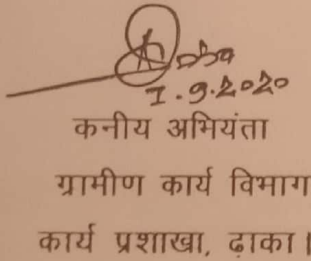 1.9.2020
कनीय अभियंता
ग्रामीण कार्य विभाग
कार्य प्रशाखा, ढ़ाका।